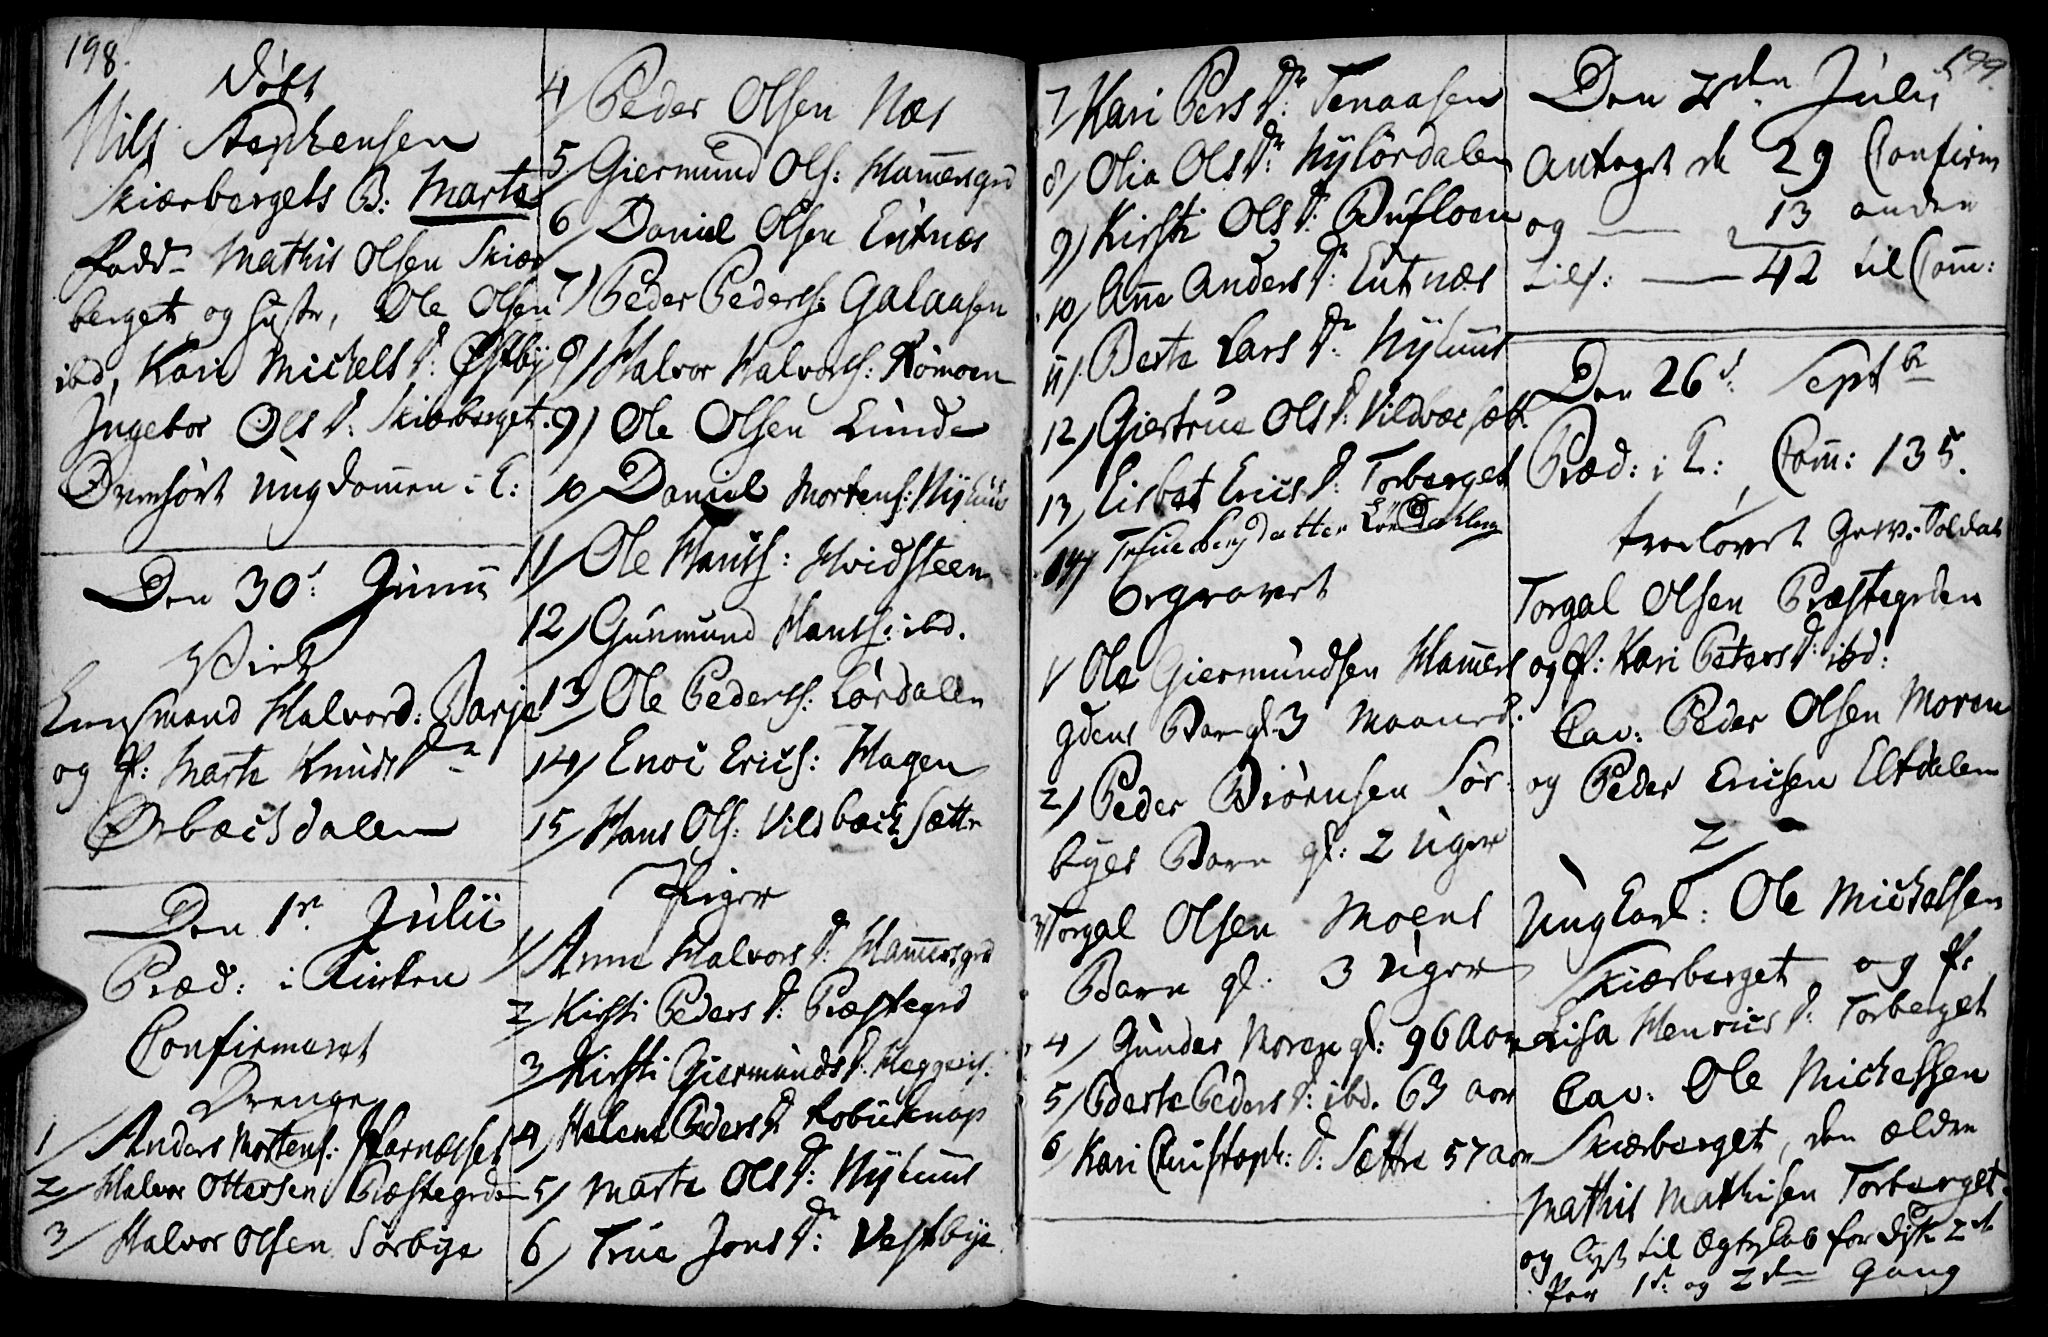 198.
Døbt
Nils Stephensen
Skiærbergets B: Marte
Fadd- Mathis Olsen Skiær
berget og hustr, Ole Olsen
ibd, Kari Michels D: Østbÿ
Ingebor Ols D: Skiærberget.
Overhørt Ungdommen i T:
Den 30t Junii
Viet
Halvord:
og P: Marte Knuds Dr
Ørbæchsdalen
Den 1ste Julii
Præd: i Kirken
Confirmeret
Drenge
1/ Anders Mortens:
2/ Halvor Ottersen Præstegrden
3/ Halvor Olsen Sørbye
4/ Peder Olsen Næs
5/ Giermund Ols: Ham̄ersgrd
6/ Daniel Olsen Eütnæs
7/ Peder Peders: Galaasen
8/ Halvor Halvors: Rømoen
9) Ole Olsen Lunde
10 Daniel Mortens: Nÿhuus
11/ Ole Hans: Hvidsteen
12/ Gunmund Hans: ibd.
13 Ole Peders: Lørdalen
14/ Enoc Erics: Hagen
15/ Hans Ols: Vildbæchsættr
Piger
1/ Anne Halvors D: Ham̄ersgrd
2 Kirsti Peders D: Præstegrd
3 Kirsti Giermunds D:
4 Helene Peders D:
5) Marte Ols D: Nÿhuus
6/ True Jons D: Vestbye
7/ Kari Pers Dr: Tenaasen
8/ Olia Ols Dr Nÿlørdalen
9) Kirsti Ols D: Bufloen
10/ An̄e Anders D: Eutnæs
11) Berte Lars Dr Nÿhuus
12/ Giertrue Ols D: Vildbæcsæt
13/ Lisbet Erics D: Torberget
14)
Begravet
1/ Ole Giermundsen Ham̄ers
gdens Barn gl: 3 Maaned.
2/ Peder Biørnsen Sør-
byes Barn gl: 2 Uger
3 Torgal Olsen Moens
Barn gl: 3 Uger
4/ Gunder Moren gl: 96 Aar
5/ Berte Peders D: ibd. 63 aar
6 Kari Christoph: D: Sættre 57 aar
199.
Den 2den Julii
Antoges de 29 Confirm
og 13 andre
Tils: 42 til Com̄:
Den 26d: Septbr
Præd: i T: Com̄: 135.
trolovet Gev: Soldat
Torgal Olsen Præstegrden
og P: Kari Peters D: ibd:
Cav: Peder Olsen Moren
og Peder Ericsen Eltdalen
2/
Ungkarl: Ole Michelsen
Skiærberget og P:
Lisa Henrics D: Torberget
Cav: Ole Michelsen
Skiærberget, den ældre
Mathis Mathisen Torberget.
og lyst til Ægteskab for
for 1ste og 2den Gang